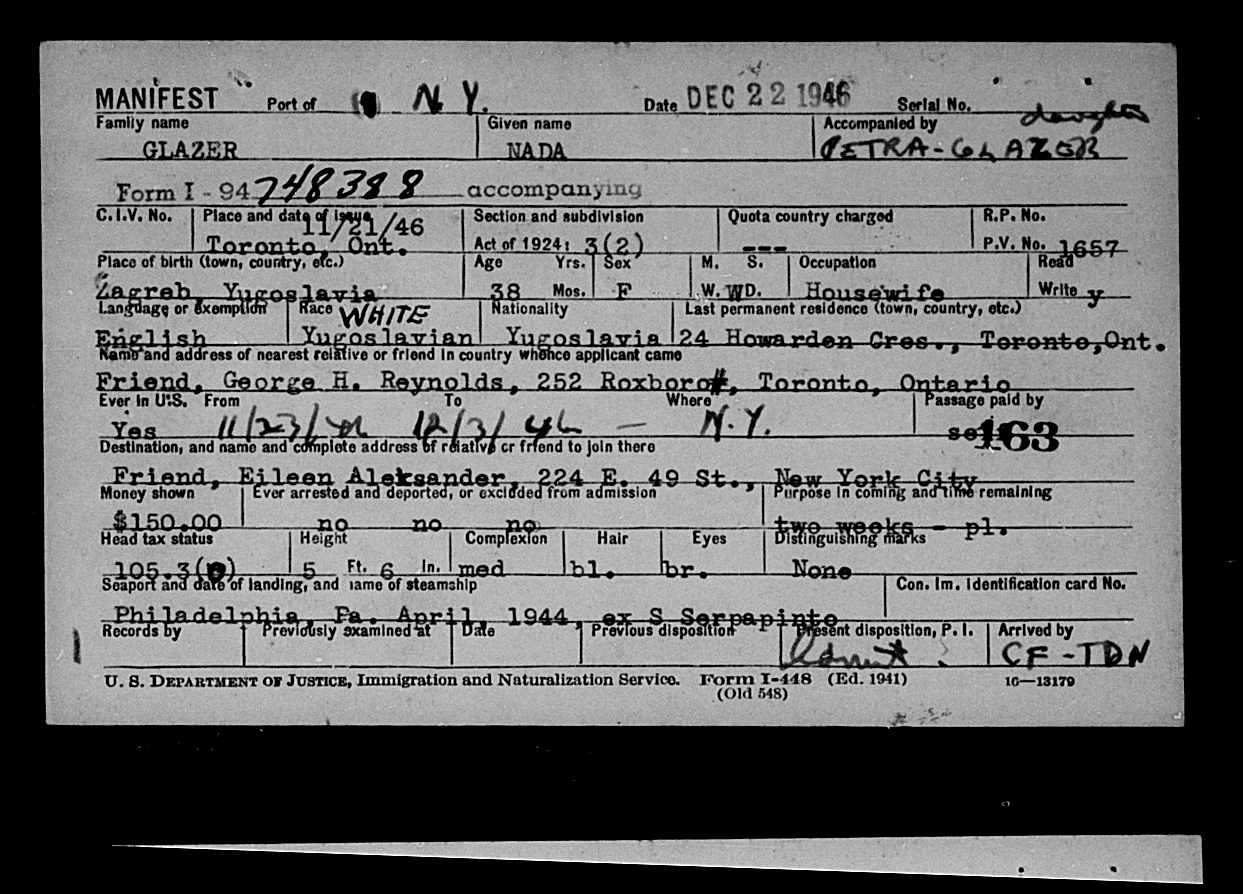 MANIFEST Port of N. Y. Date DEC 22 1946 Serial No.
Family name Given name Accompanied by daughter
GLAZER NADA PETRA-GLAZER
Form I - 94 748388 accompanying
C.I.V. No. Place and date of issue Section and subdivision Quota country charged R.P. No.
11/21/46
Toronto, Ont. Act of 1924: 3(2) --- P.V. No. 1657
Place of birth (town, country, etc.) Age Yrs. Sex M. S. Occupation Read
Zagreb, Yugoslavia 38 Mos. F W. WD. Housewife Write y
Language or exemption Race WHITE Nationality Last permanent residence (town, country, etc.)
English Yugoslavian Yugoslavia 24 Howarden Cres., Toronto,Ont.
Name and address of nearest relative or friend in country whence applicant came
Friend, George H. Reynolds, 252 Roxboro, Toronto, Ontario
Ever in U.S. From To Where Passage paid by
Yes 11/23/46 12/3/46 — N.Y. 163
Destination, and name and complete address of relative or friend to join there
Friend, Eileen Aleksander, 224 E. 49 St., New York City
Money shown Ever arrested and deported, or excluded from admission Purpose in coming and time remaining
$150.00 no no no two weeks - pl.
Head tax status Height Complexion Hair Eyes Distinguishing marks
105.3( ) 5 Ft. 6 In. med bl. br. None
Seaport and date of landing, and name of steamship Con. Im. Identification card No.
Philadelphia, Pa. April, 1944, ex S Serpapinto
Records by Previously examined at Date Previous disposition Present disposition, P. I. Arrived by
Admit CF-TDN
U. S. DEPARTMENT OF JUSTICE, Immigration and Naturalization Service. Form I-448 (Ed. 1941) 16—13179
(Old 548)